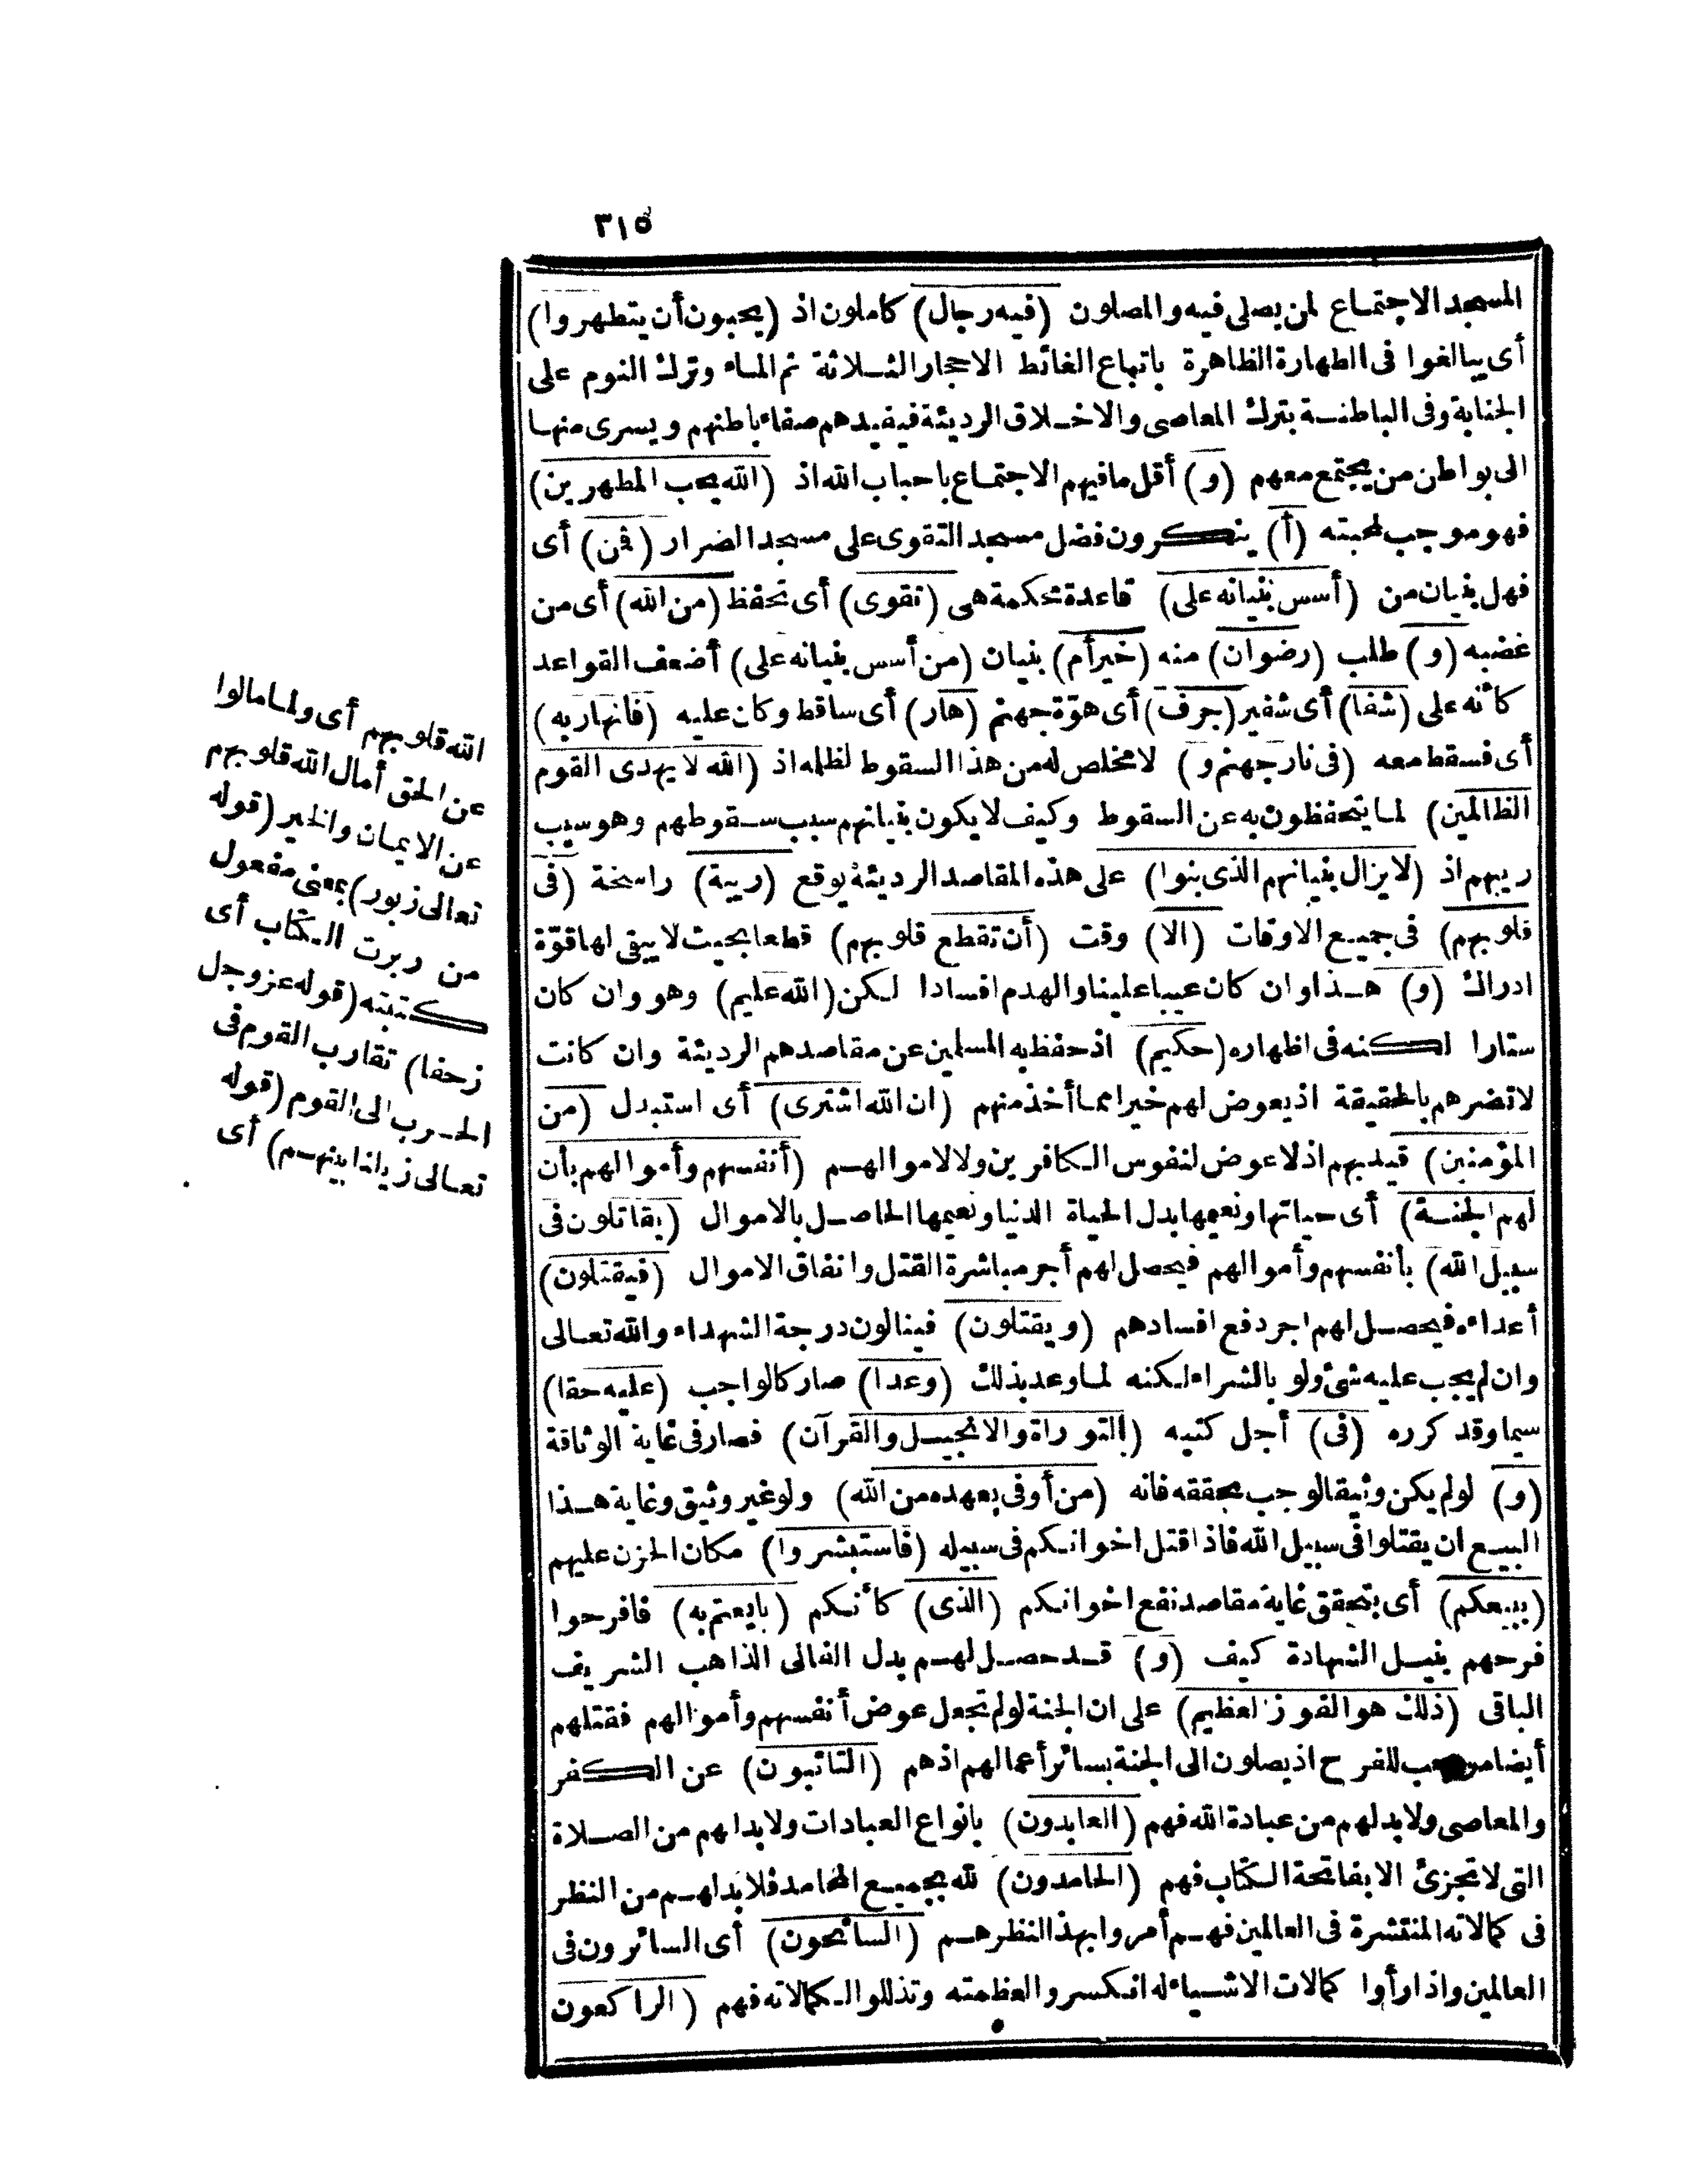 ٣١٥
المسجد الاجتماع لمن يصلى فيه والمصلون (فيه رجال) كاملون اذ (يحبون أن يتطهروا)
أى يبالغوا فى الطهارة الظاهرة باتباع الغائط الاحجار الثلاثة ثم الماء وترك النوم على
الجنابة وفى الباطنة بترك المعاصى والاخلاق الرديئة فيفيدهم صفاء باطنهم ويسرى منها
الى بواطن من يجتمع معهم (و) أقل ما فيهم الاجتماع باحباب الله اذ (الله يحب المطهرين)
فهو موجب لمحبته (أ) ينكرون فضل مسجد التقوى على مسجد الضرار (فمن) أى
فهل بنيان من (أسس بنيانه على) قاعدة محكمة هى (تقوى) أى تحفظ (من الله) أى من
غضبه (و) طلب (رضوان) منه (خير أم) بنيان (من أسس بنيانه على) أضعف القواعد
كأنه على (شفا) أى شفير (جرف) أى هوّة جهنم (هار) أى ساقط وكان عليه (فانهار به)
أى فسقط معه (فى نار جهنم و) لا مخلص له من هذا السقوط لظلمه اذ (الله لا يهدى القوم
الظالمين) لما يتحفظون به عن السقوط وكيف لا يكون بنيانهم سبب سقوطهم وهو سبب
ريبهم اذ (لا يزال بنيانهم الذى بنوا) على هذه المقاصد الرديئة يوقع (ريبة) راسخة (فى
قلوبهم) فى جميع الاوقات (الا) وقت (أن تقطع قلوبهم) قطعا بحيث لا يبقى لها قوّة
ادراك (و) هذا وان كان عيبا علينا والهدم افسادا لكن (الله عليم) وهو وان كان
ستارا لكنه فى اظهاره (حكيم) اذ حفظ به المسلمين عن مقاصدهم الرديئة وان كانت
لا تضرهم بالحقيقة اذ يعوض لهم خيرا مما أخذ منهم (ان الله اشترى) أى استبدل (من
المؤمنين) قيد بهم اذ لا عوض لنفوس الكافرين ولا لاموالهم (أنفسهم وأموالهم بأن
لهم الجنة) أى حياتها ونعيمها بدل الحياة الدنيا ونعيمها الحاصل بالاموال (يقاتلون فى
سبيل الله) بأنفسهم وأموالهم فيحصل لهم أجر مباشرة القتل وانفاق الاموال (فيقتلون)
أعداءه فيحصل لهم اجر دفع افسادهم (ويقتلون) فينالون درجة الشهداء والله تعالى
وان لم يجب عليه شئ ولو بالشراء لكنه لما وعد بذلك (وعدا) صار كالواجب (عليه حقا)
سيما وقد كرره (فى) أجل كتبه (التوراة والانجيل والقرآن) فصار فى غاية الوثاقة
(و) لو لم يكن وثيقا لوجب تحققه فانه (من أوفى بعهده من الله) ولو غير وثيق وغاية هذا
البيع ان يقتلوا فى سبيل الله فاذا قتل اخوانكم فى سبيله (فاستبشروا) مكان الحزن عليهم
(ببيعكم) أى بتحقق غاية مقاصد نفع اخوانكم (الذى) كأنكم (بايعتم به) فافرحوا
فرحهم بنيل الشهادة كيف (و) قد حصل لهم بدل الفانى الذاهب الشريف
الباقى (ذلك هو الفوز العظيم) على ان الجنة لو لم تجعل عوض أنفسهم وأموالهم فقتلهم
أيضا موجب للفرح اذ يصلون الى الجنة بسائر أعمالهم اذ هم (التائبون) عن الكفر
والمعاصى ولا بد لهم من عبادة الله فهم (العابدون) بانواع العبادات ولا بد لهم من الصلاة
التى لا تجزئ الا بفاتحة الكتاب فهم (الحامدون) لله بجميع المحامد فلا بد لهم من النظر
فى كمالاته المنتشرة فى العالمين فهم أمروا بهذا النظر هم (السائحون) أى السائرون فى
العالمين واذا رأوا كمالات الاشياء له انكسروا لعظمته وتذللوا لكمالاته فهم (الراكعون
الله قلوبهم أى ولما مالوا
عن الحق أمال الله قلوبهم
عن الايمان والخير (قوله
تعالى زبور) بمعنى مفعول
من زبرت الكتاب أى
كتبته (قوله عز وجل
زحفا) تقارب القوم فى
الحرب الى القوم (قوله
تعالى زيلنا بينهم) أى